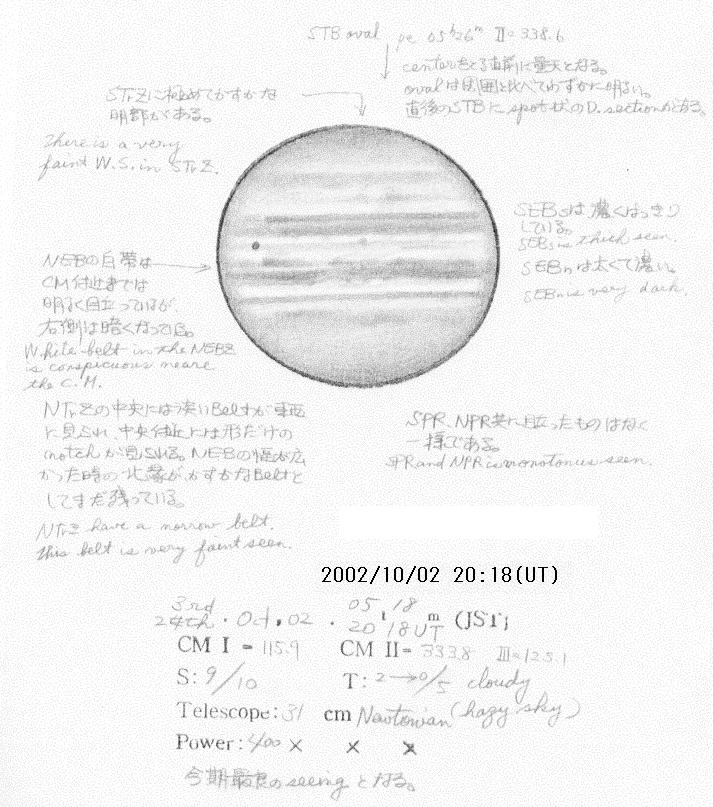 STB oval pe 05h26m II=338.6
centerをとる直前に曇天となる。
ovalは周囲と比べてわずかに明るい。
直後のSTBにspot状のD.sectionがある。
STrZに極めてかすかな
明部がある。
There is a very
faint W.S. in STrZ.
SEBsは濃くはっきり
している。
SEBs is thick seen.
SEBnは太くて濃い。
SEBn is very dark.
NEBの白帯は
CM付近までは
明るく目立っているが、
右側は暗くなっている。
White belt in the NEBZ
is conspicuous neare
the C.M.
NTrZの中央には淡いBeltが東西
に見られ、中央付近には形だけの
notchが見られる。NEBの幅が広
かった時の北縁がかすかなBeltと
してまだ残っている。
NTrZ have a norrow belt.
This belt is very faint seen.
SPR、NPR共に目立ったものはなく
一様である。
SPR and NPR is monotonus seen.
2002/10/02 20:18(UT)
3rd 05 18
24th · Oct. 02 · 20h 18UT m (JST)
CM I = 115.9 CM II= 333.8 III=125.1
S: 9/10 T: 2→0/5 cloudy
Telescope: 31 cm Newtonian (hazy sky)
Power: 400 × × ×
今期最良のseeingとなる。